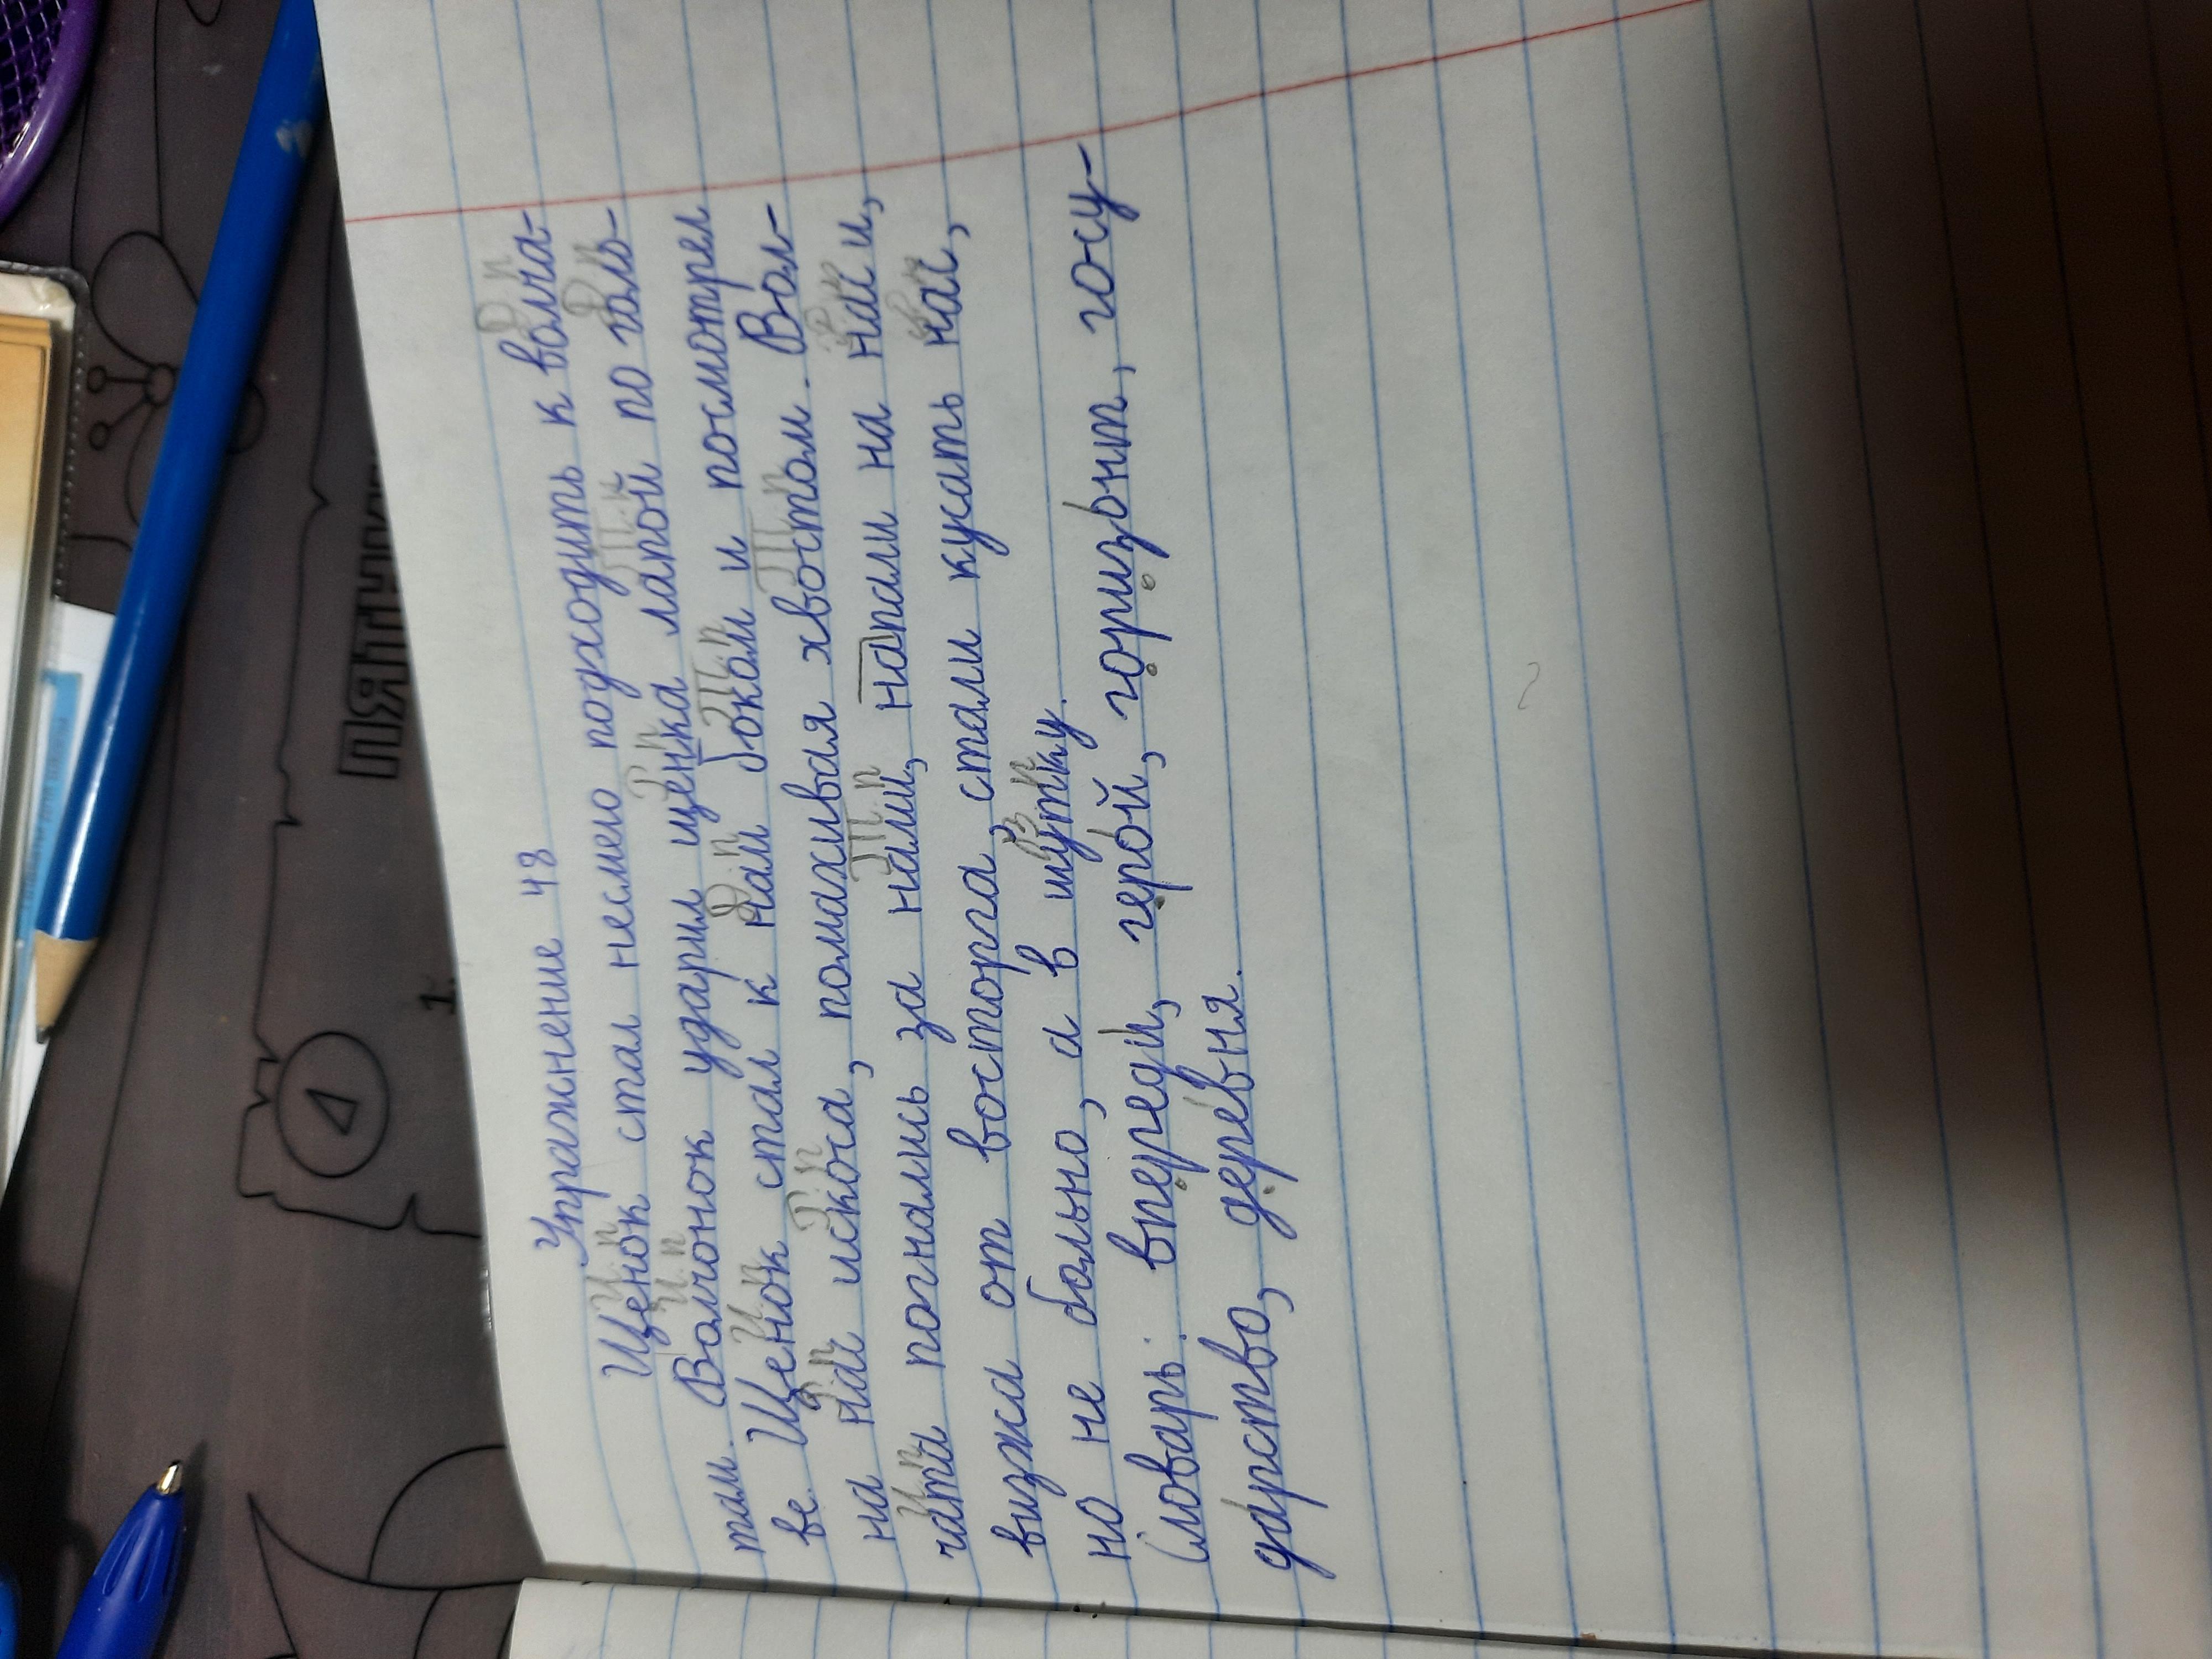 Упражнение 48
Щенок стал несмело подходить к волча-
там. Волчонок ударил щенка лапой по голь-
ве. Щенок стал к нам боком и посмотрел
на нас искоса, помахивая хвостом. Вол-
чата погнались за нами, напали на нас и,
визжа от восторга, стали кусать нас,
но не больно, а в шутку.
Словарь: впереди, герой, горизонт, госу-
дарство, деревня.
ПЯТН
1.